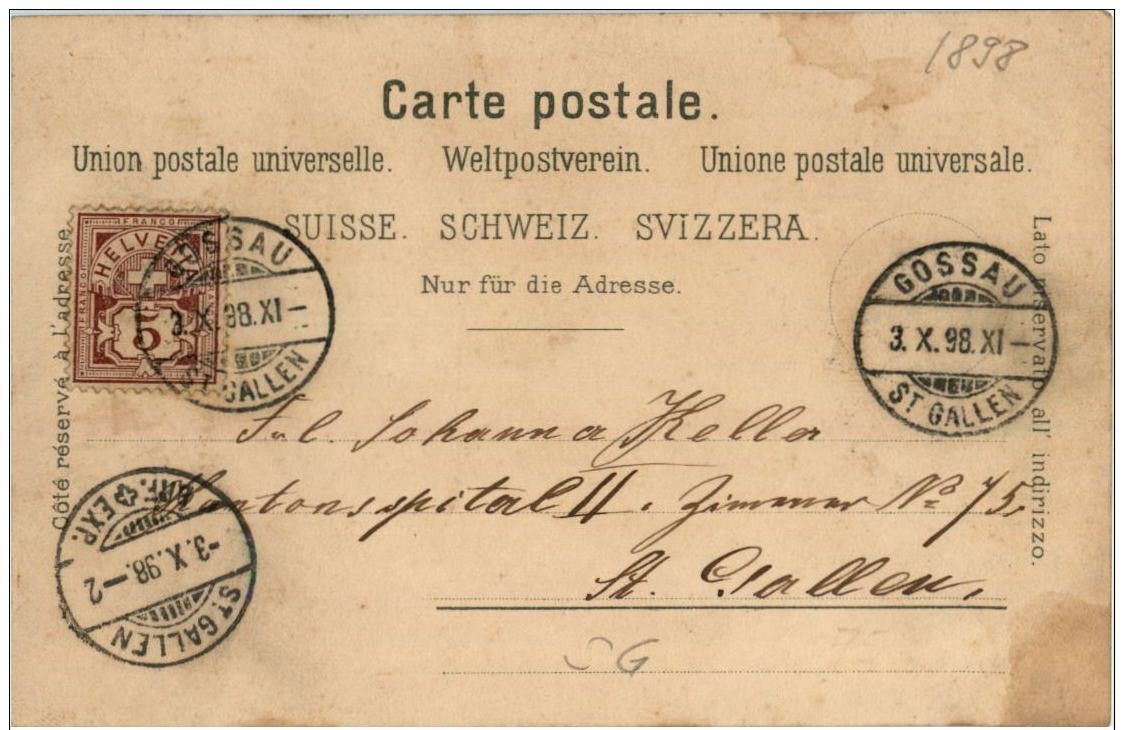 1898
Carte postale.
Union postale universelle. Weltpostverein. Unione postale universale.
SUISSE. SCHWEIZ. SVIZZERA.
Nur für die Adresse.
Côté réservé à l'adresse
Lato riservato all' indirizzo.
FRANCO
HELVETIA
FRANCO
5
GOSSAU
3. X. 98. XI –
ST. GALLEN
GOSSAU
3. X. 98. XI –
ST. GALLEN
Frl. Johanna Keller
Kantonsspital II. Zimmer No 75.
St. Gallen.
BRF. EXP.
-3. X. 98. – 2
ST. GALLEN
SG